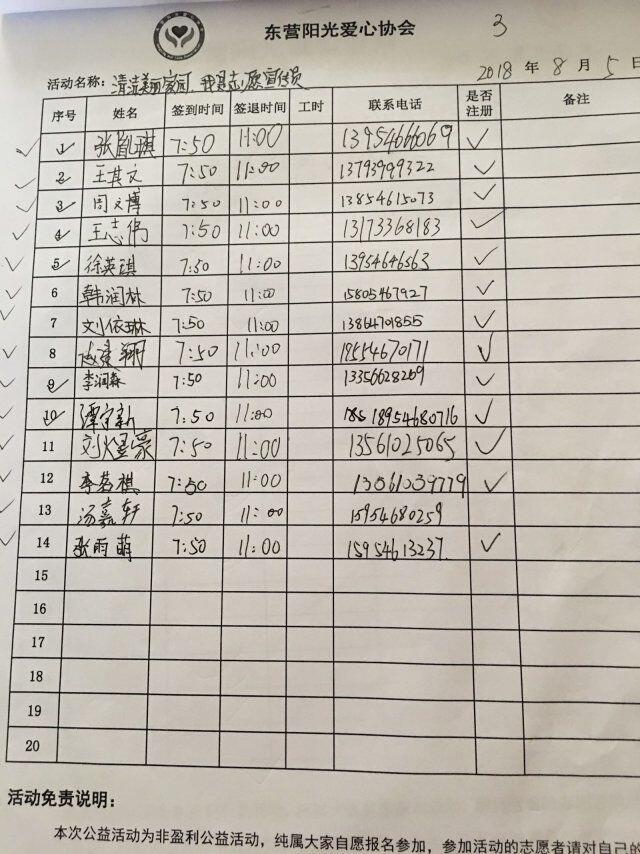 东营阳光爱心协会 3
活动名称：清洁美丽家园，我是志愿宣传员 2018年8月5日
序号 姓名 签到时间 签退时间 工时 联系电话 是否注册 备注
1 张胤琪 7:50 11:00 13954666069 ✓
2 王其文 7:50 11:00 13793989322 ✓
3 周文博 7:50 11:00 13854615073 ✓
4 王志伟 7:50 11:00 13173368183 ✓
5 徐英琪 7:50 11:00 13954646563 ✓
6 韩润林 7:50 11:00 15805467927 ✓
7 刘依琳 7:50 11:00 13864701855 ✓
8 7:50 11:00 18554670171 ✓
9 李润森 7:50 11:00 13356628269 ✓
10 谭宇新 7:50 11:00 18954680716 ✓
11 刘煜豪 7:50 11:00 13561025065 ✓
12 李茗祺 7:50 11:00 13561039779 ✓
13 汤嘉轩 7:50 11:00 15954680259
14 张雨萌 7:50 11:00 15954613237. ✓
15
16
17
18
19
20
活动免责说明：
本次公益活动为非盈利公益活动，纯属大家自愿报名参加，参加活动的志愿者请对自己的